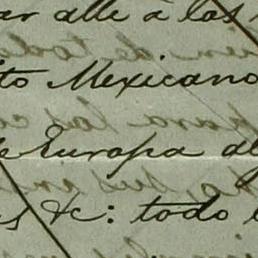 ar alle á los
to Mexicano
e Europa de
s &c: todo